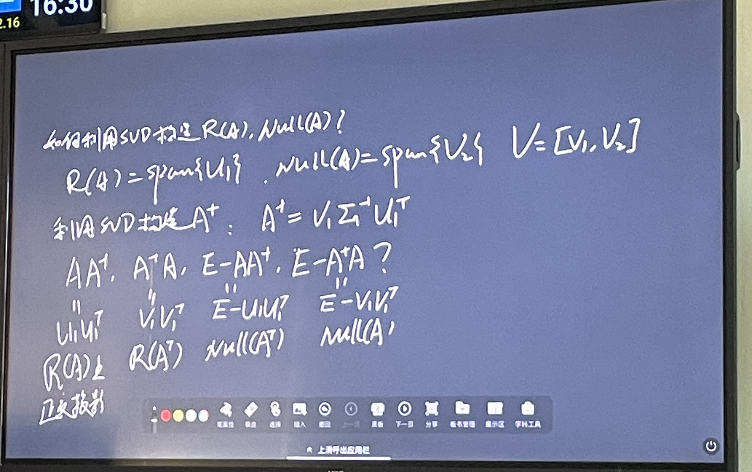 16:30
2.16
如何利用SVD构造R(A), Null(A)?
R(A)=span{U₁}. Null(A)=span{V₂} V=[V₁,V₂]
利用SVD构造A⁺: A⁺=V₁Σ₁⁻¹U₁ᵀ
AA⁺, A⁺A, E-AA⁺, E-A⁺A?
= = = =
U₁U₁ᵀ V₁V₁ᵀ E-U₁U₁ᵀ E-V₁V₁ᵀ
R(A)上 R(Aᵀ) Null(Aᵀ) Null(A)
正交投影
笔 选择 插入 撤回 上一页 下一页 分享 板书管理 展示区 学科工具
上滑呼出应用栏